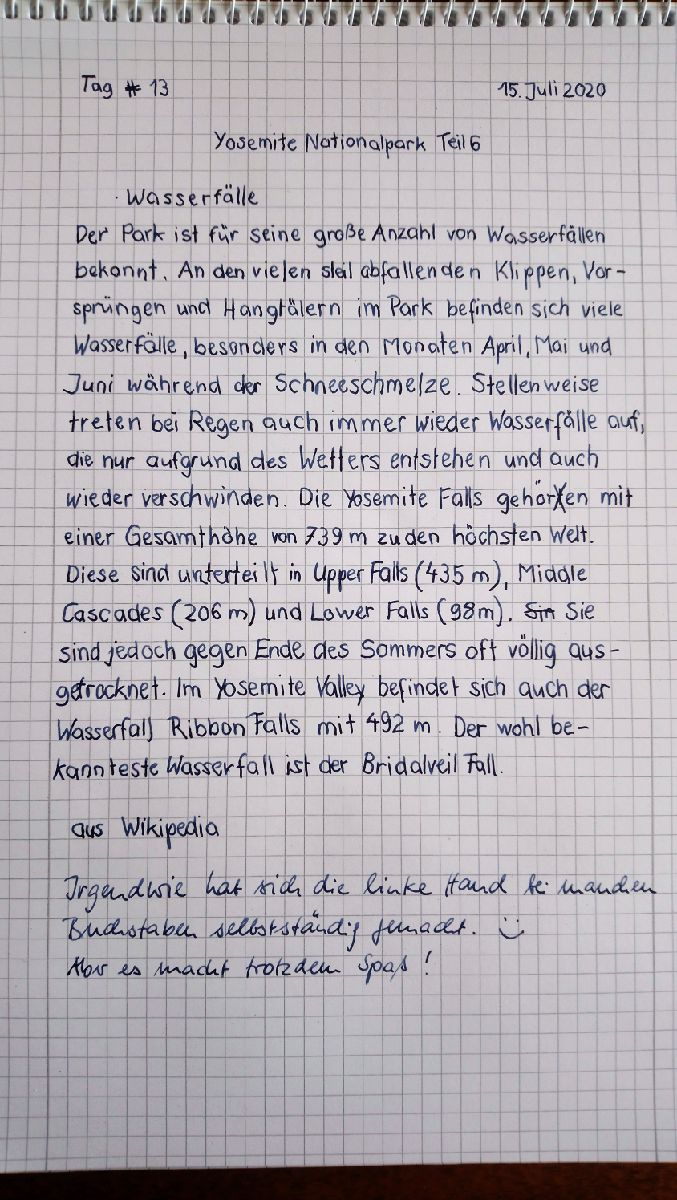 Tag # 13
15. Juli 2020
Yosemite Nationalpark Teil 6
Wasserfälle
Der Park ist für seine große Anzahl von Wasserfällen
bekannt. An den vielen steil abfallenden Klippen, Vor-
sprüngen und Hangtälern im Park befinden sich viele
Wasserfälle, besonders in den Monaten April, Mai und
Juni während der Schneeschmelze. Stellenweise
treten bei Regen auch immer wieder Wasserfälle auf,
die nur aufgrund des Wetters entstehen und auch
wieder verschwinden. Die Yosemite Falls gehören mit
einer Gesamthöhe von 739 m zu den höchsten Welt.
Diese sind unterteilt in Upper Falls (435 m), Middle
Cascades (206 m) und Lower Falls (98m). Sin Sie
sind jedoch gegen Ende des Sommers oft völlig aus-
getrocknet. Im Yosemite Valley befindet sich auch der
Wasserfall Ribbon Falls mit 492 m. Der wohl be-
kannteste Wasserfall ist der Bridalveil Fall.
aus Wikipedia
Irgendwie hat sich die linke Hand bei manchen
Buchstaben selbstständig gemacht. :)
Aber es macht trotzdem Spaß!